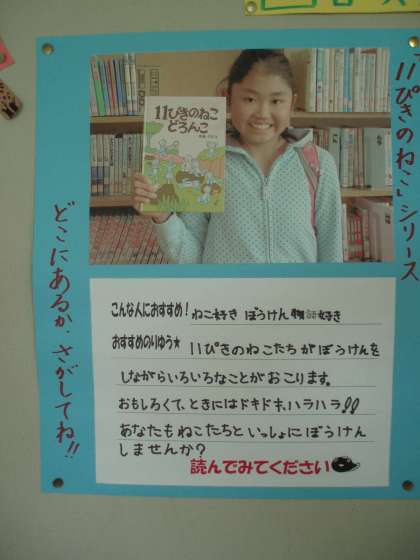 「11ぴきのねこ」シリーズ
11ぴきのねこ
どろんこ
どこにあるか、さがしてね!!
こんな人におすすめ！ ねこ好き ぼうけん物語好き
おすすめのりゆう★ 11ぴきのねこたちがぼうけんを
しながらいろいろなことがおこります。
おもしろくて、ときにはドキドキ、ハラハラ!!
あなたもねこたちといっしょにぼうけん
しませんか?
読んでみてください